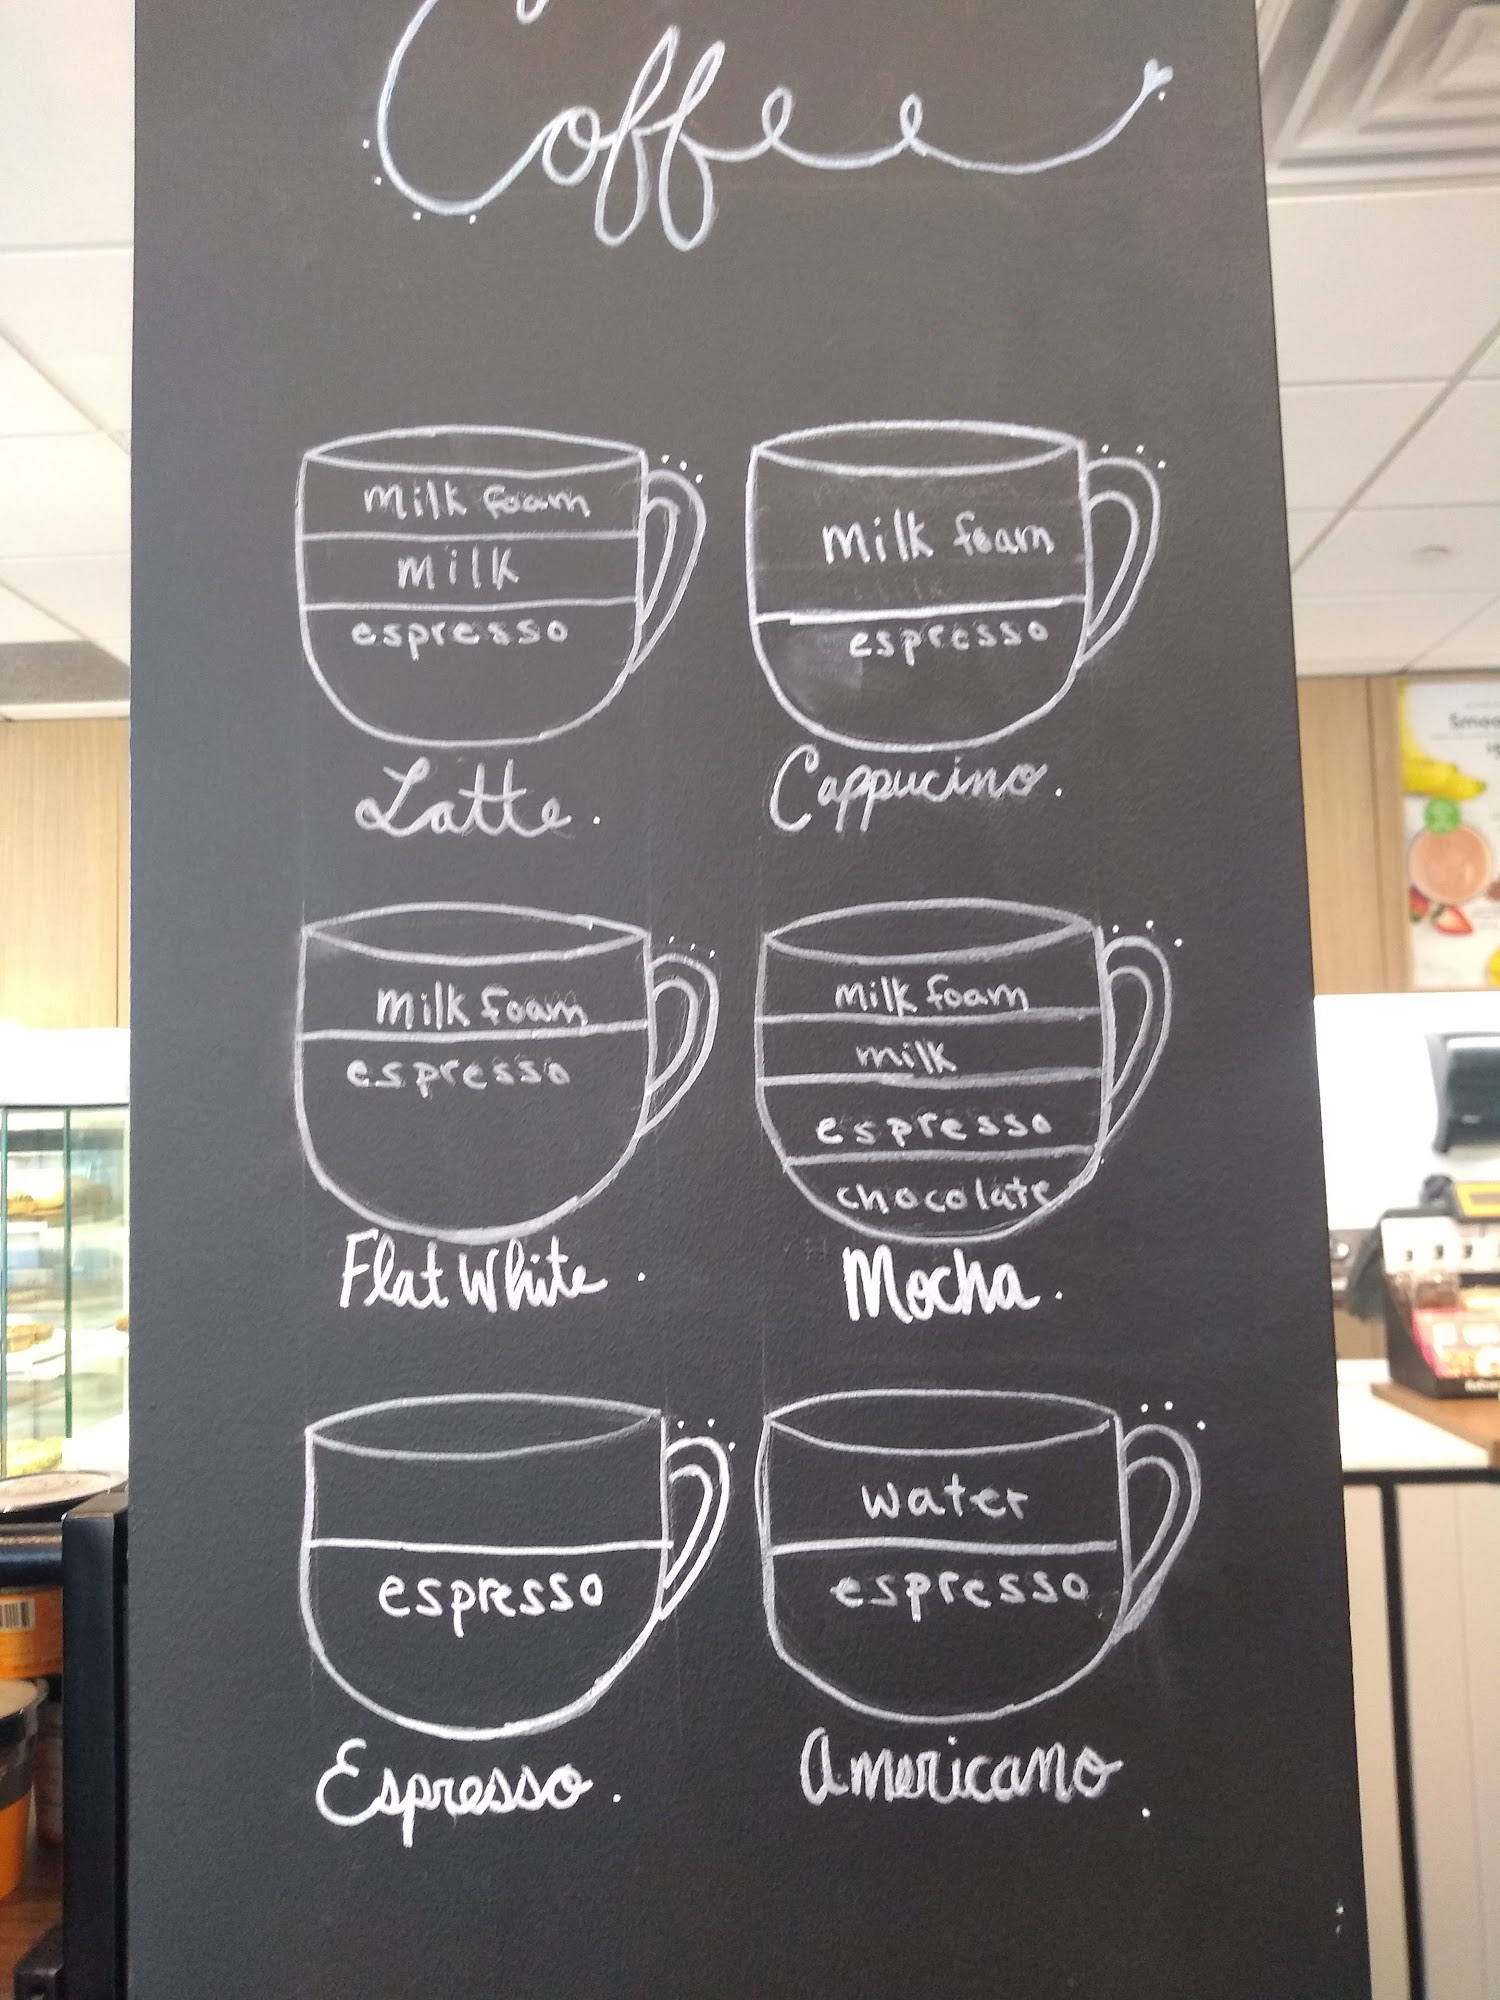 Coffee
milk foam
milk
espresso
Latte.
milk foam
espresso
Cappucino.
milk foam
espresso
Flat White.
milk foam
milk
espresso
chocolate
Mocha.
espresso
Espresso.
water
espresso
Americano.